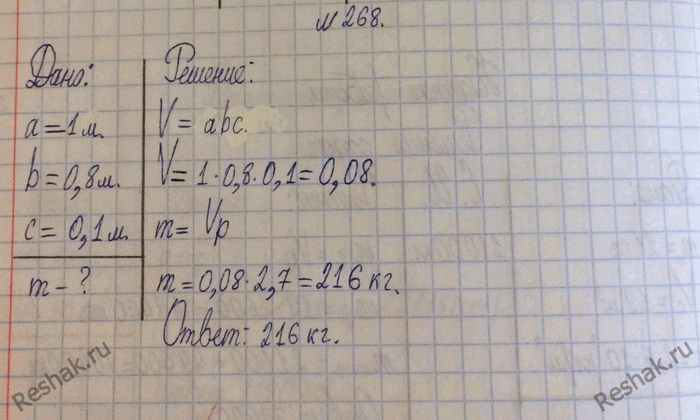 № 268.
Дано:
a = 1 м.
b = 0,8 м.
c = 0,1 м.
m - ?
Решение:
V = abc.
V = 1 · 0,8 · 0,1 = 0,08.
m = Vρ
m = 0,08 · 2,7 = 216 кг.
Ответ: 216 кг.
Reshak.ru
Reshak.ru